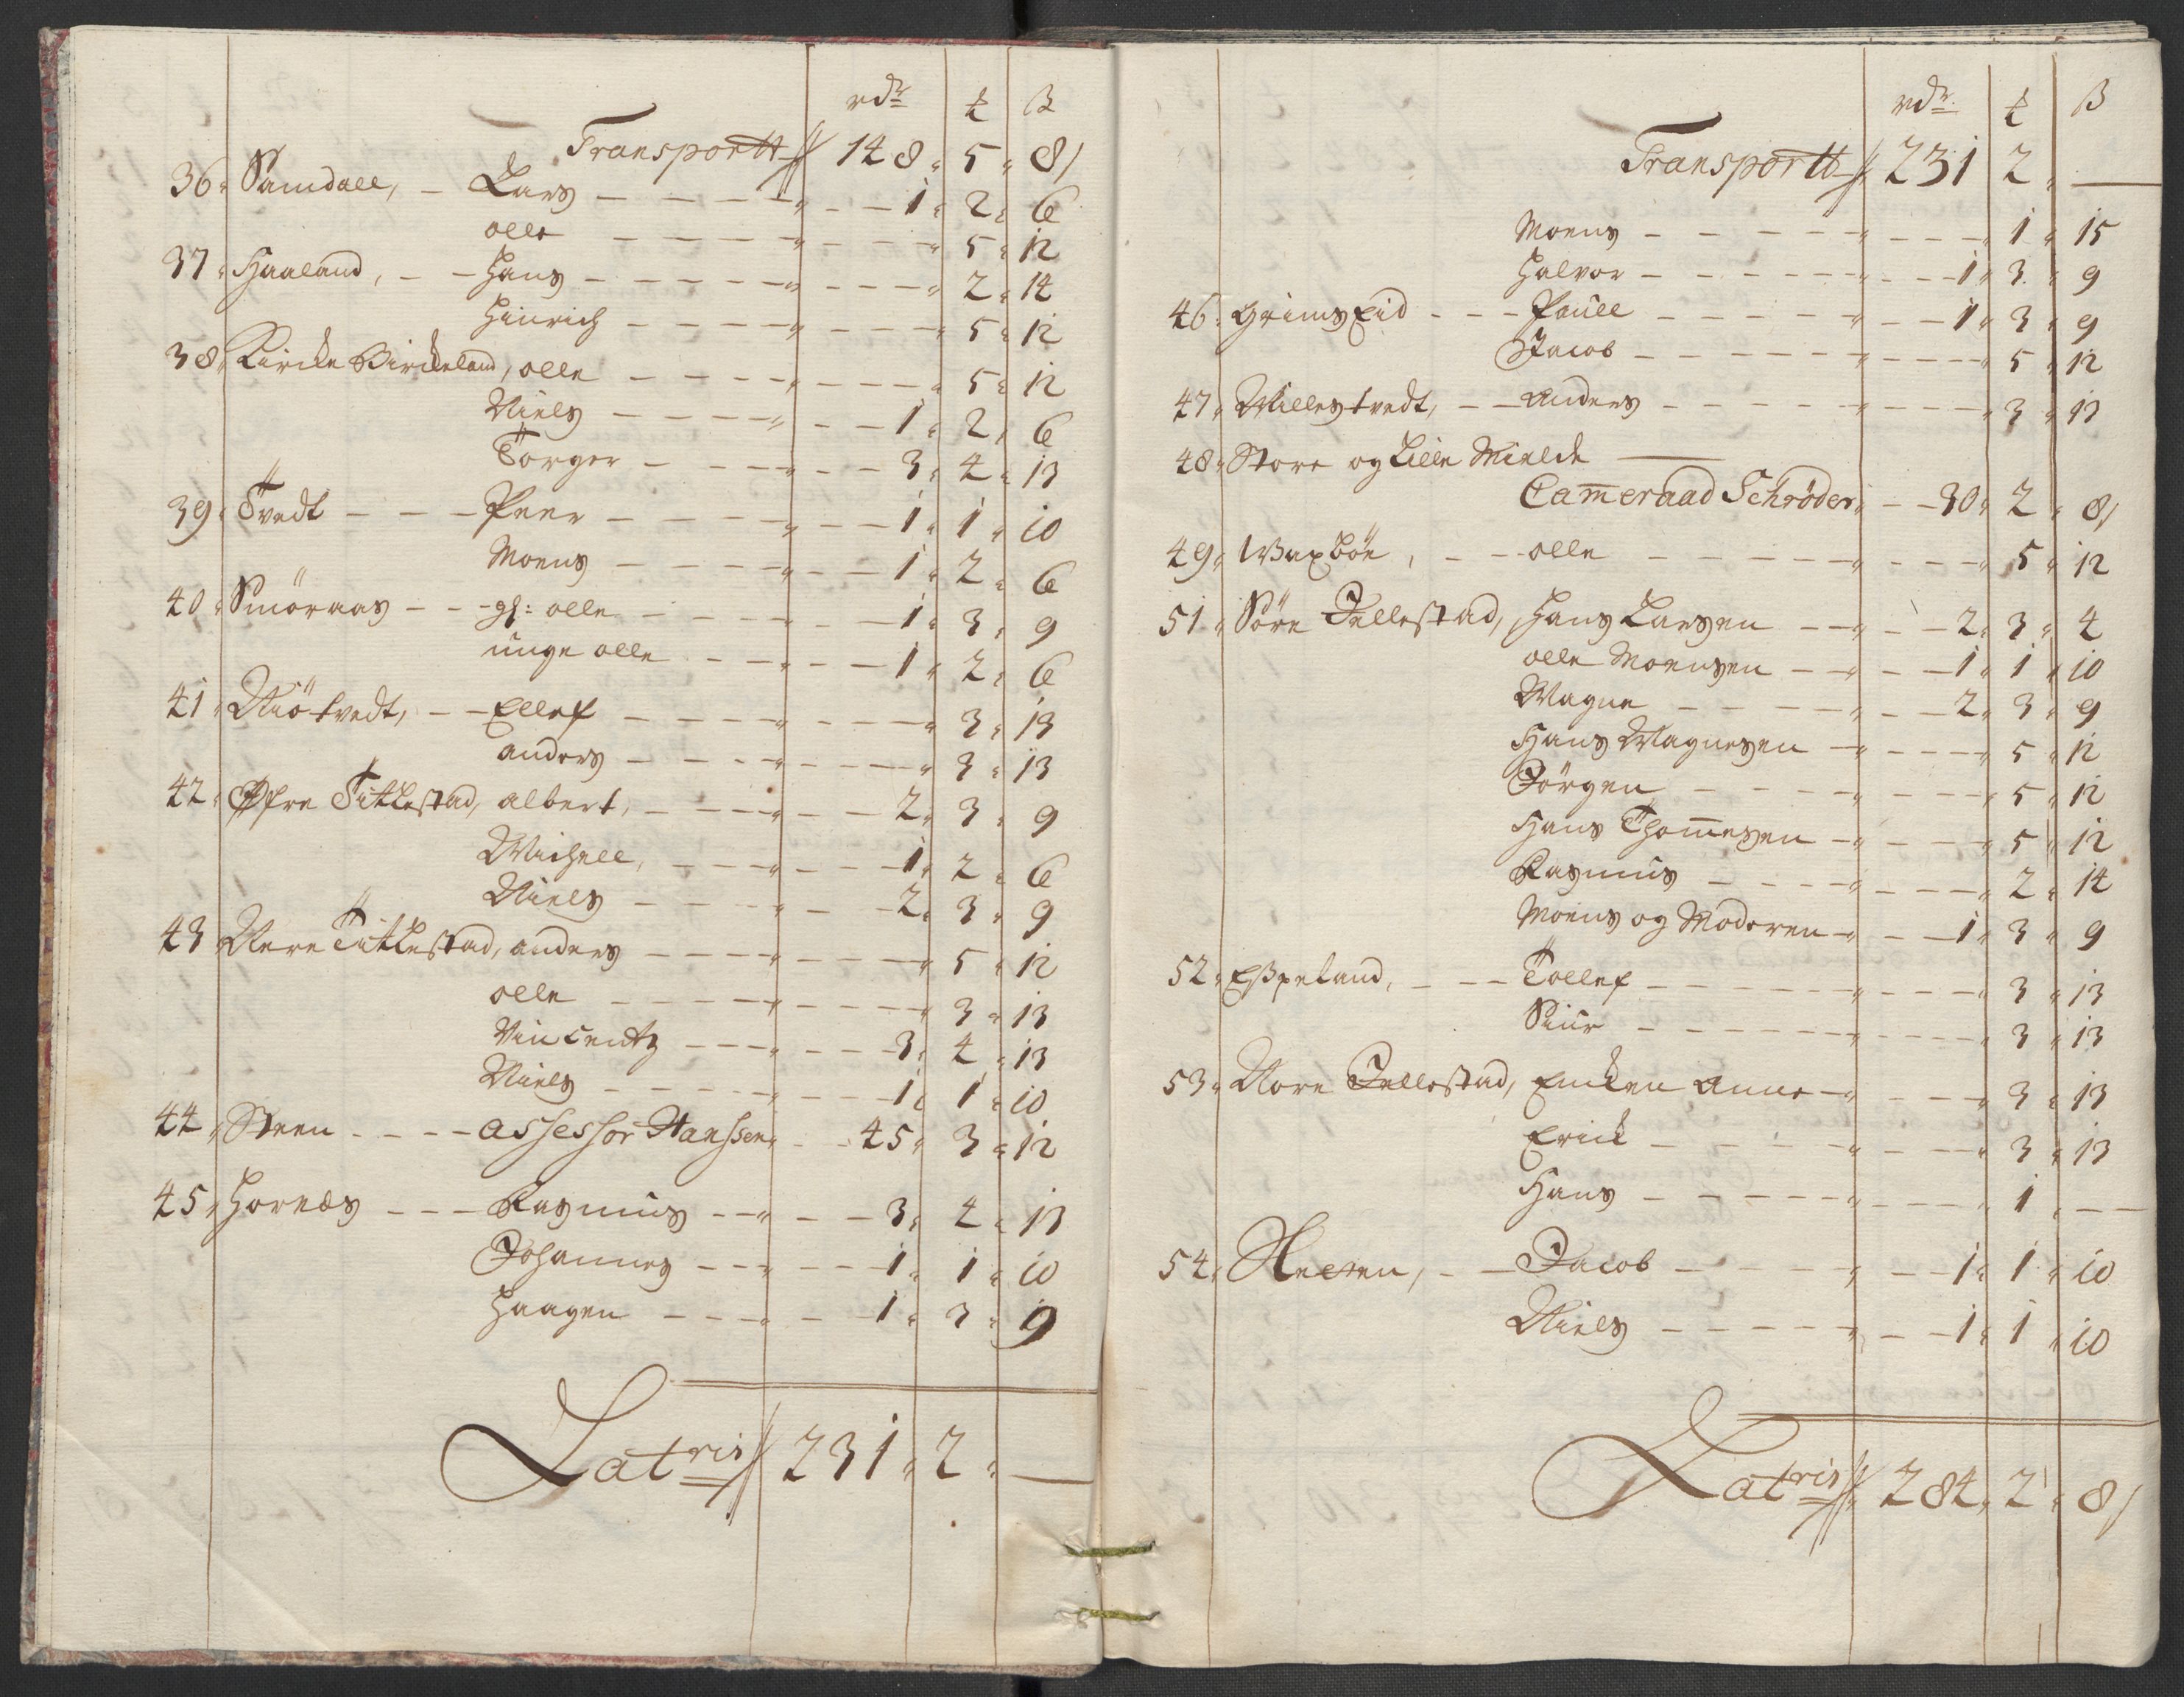 rdr ₰ ß
Transportt 148 5 8
36 Samdall, Lars 1 2 6
olle 5 12
37 Haaland, Hans 2 14
Hinrich 5 12
38 Kircke Birckeland, olle 5 12
Niels 1 2 6
Törger 3 4 13
39 Tvedt Peer 1 1 10
Moens 1 2 6
40 Smöraas gl: olle 1 3 9
unge olle 1 2 6
41 Niötvedt, Ellef 3 13
anders 3 13
42 Øfre Titlestad, albert, 2 3 9
Michell, 1 2 6
Niels 2 3 9
43 Nere Titlestad, anders 5 12
olle 3 13
Vincentz 3 4 13
Niels 1 1 10
44 Steen assessor Hanssen 45 3 12
45 Hornæs Rasmus 3 4 13
Johannes 1 1 10
Haagen 1 3 9
Latris 231 2 —
rdr ₰ ß
Transportt 231 2 —
Moens 1 15
Halvor 1 3 9
46 Grims Eid Paull 1 3 9
Jacob 5 12
47 Millestvedt, anders 3 13
48 Store og Lille Mielde
Cammeraad Schrøder 30 2 8
49 Waxböe, olle 5 12
51 Söre Jellestad, Hans Larsen 2 3 4
olle Moensen 1 1 10
Magne 2 3 9
Hans Magnesen 5 12
Jörgen 5 12
Hans Thommesen 5 12
Rasmus 2 14
Moens og Moderen 1 3 9
52 Espeland, Tollef 3 13
Siur 3 13
53 Nore Jellestad, Encken anne 3 13
Erick 3 13
Hans 1 —
54 Jacob 1 1 10
Niels 1 1 10
Latris 284 2 8